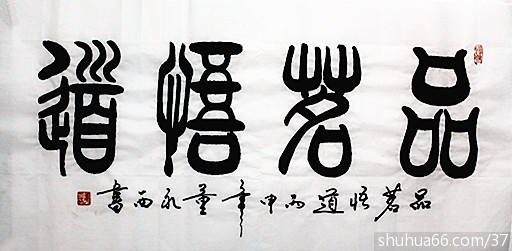 品茗悟道
品茗悟道丙申年董永西書
shuhua66.com/37